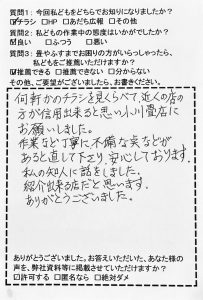 質問1：今回私どもをどちらでお知りになりましたか？
☑チラシ □HP □あだち広報 □その他
質問2：私どもの作業中の態度はいかがでしたか？
☑良い □ふつう □悪い
質問3：畳やふすまでお困りの方がいらっしゃったら、
私どもをご推薦いただけますか？
☑推薦できる □推薦できない □分からない
その他、ご要望がございましたら、お書きください。
何軒かのチラシを見くらべて近くの店の
方が信用出来ると思い小川畳店に
お願いしました。
作業など丁寧に不備な実などが
あると直して下さり安心しております。
私の知人に話をしました。
紹介出来る店だと思います。
ありがとうございました。
ありがとうございました。お答えいただいた、あなた様の
声を、弊社資料等に掲載させていただけますか？
☑許可する □匿名なら □絶対ダメ